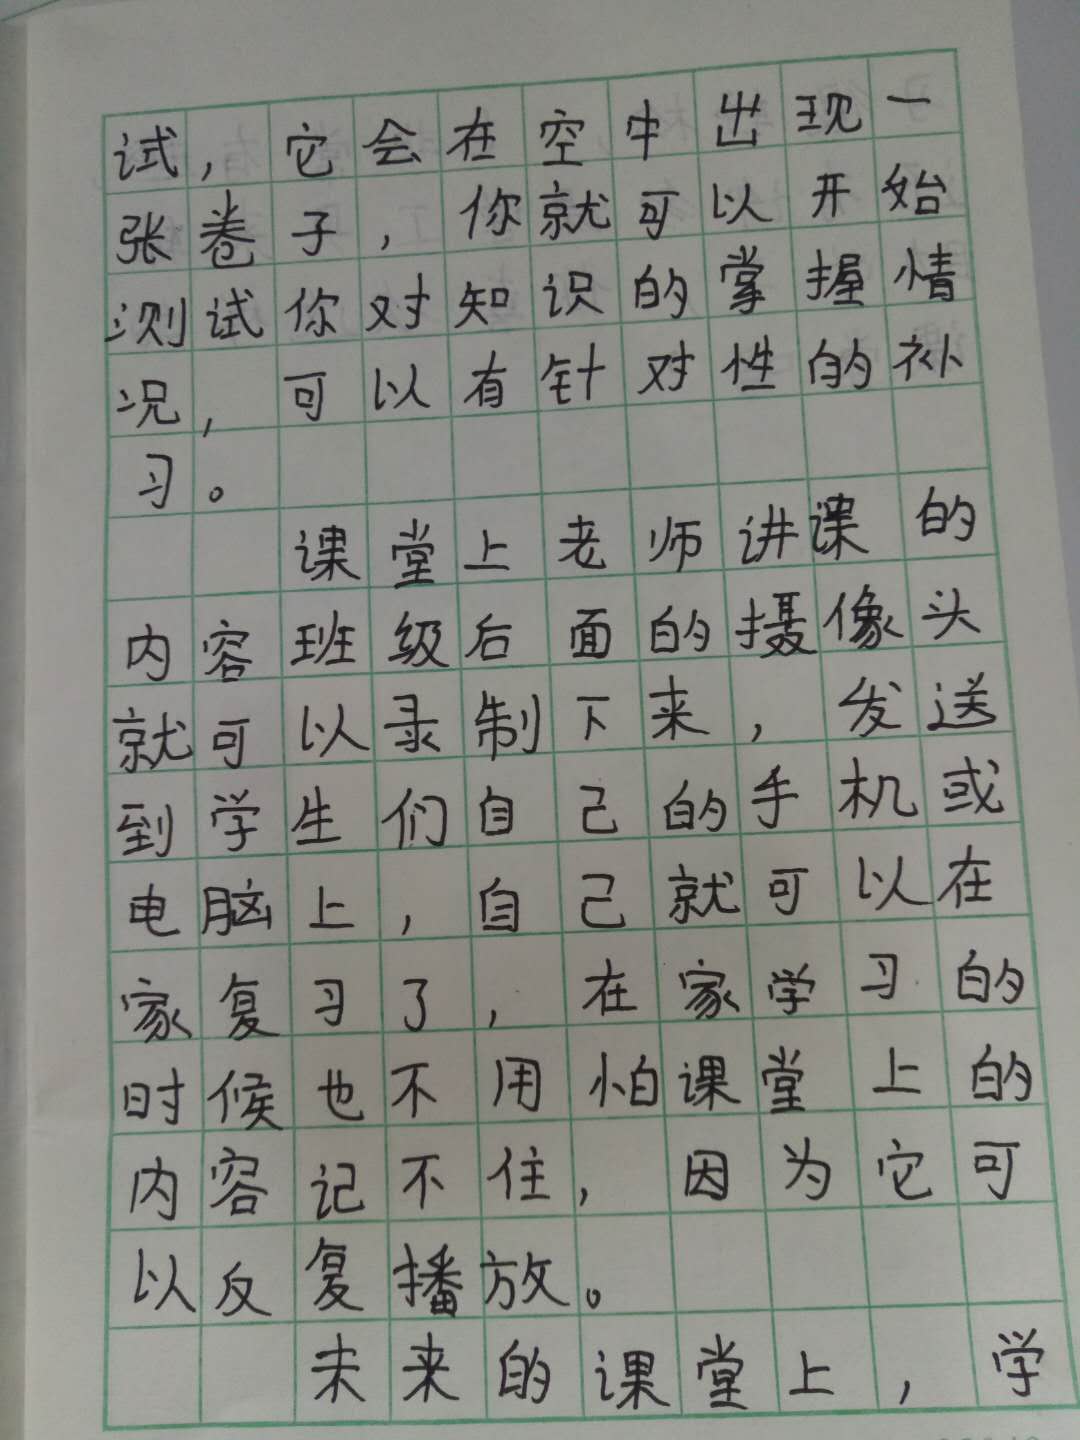 试，它会在空中出现一
张卷子，你就可以开始
测试你对知识的掌握情
况，可以有针对性的补
习。
课堂上老师讲课的
内容班级后面的摄像头
就可以录制下来，发送
到学生们自己的手机或
电脑上，自己就可以在
家复习了，在家学习的
时候也不用怕课堂上的
内容记不住，因为它可
以反复播放。
未来的课堂上，学